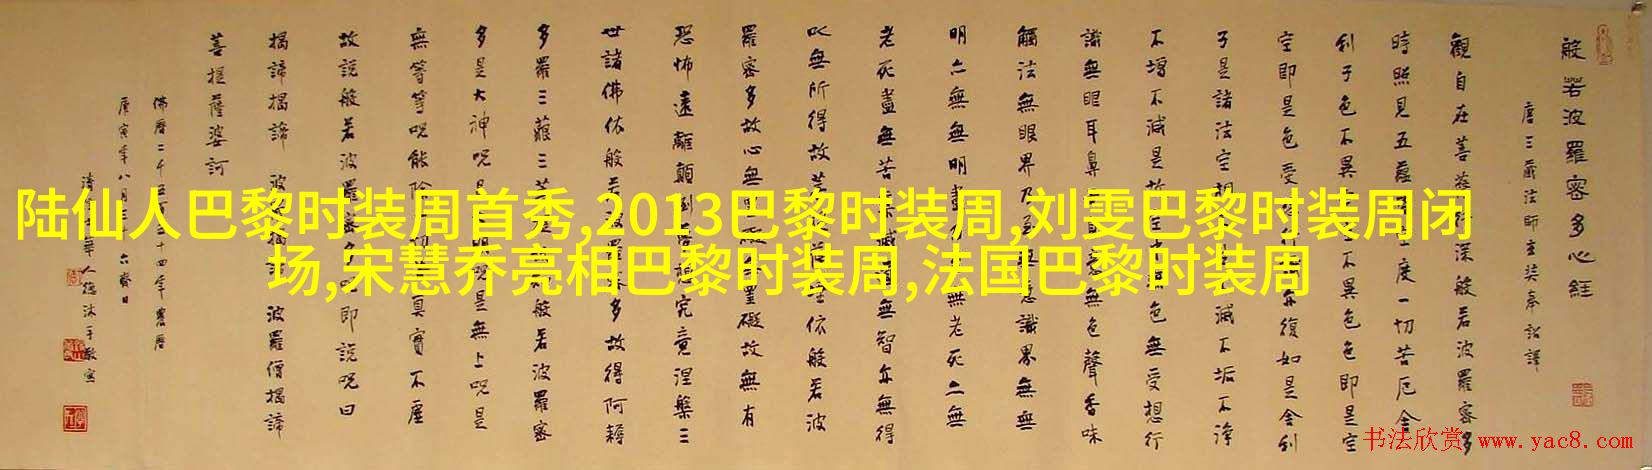 陆仙人巴黎时装周首秀,2013巴黎时装周,刘雯巴黎时装周闭
场,宋慧乔亮相巴黎时装周,法国巴黎时装周
般若波羅密多心經
唐三藏法師玄奘奉詔譯
觀自在菩薩行深般若波羅密多
時照見五蘊度一切苦厄舍
利子色不異不異色色即是空
空即是色受想亦復如是舍利
子是諸法空相滅不垢不淨
不增不減是故色無受想行
識無眼耳鼻意無色聲香味
觸法無眼界乃至意識界無無
明亦無無明盡無老死亦無
老死盡無苦集無智亦無得
以無所得故菩依般若波
羅密多故心無罣礙故無有
恐怖遠離顛倒想究竟涅槃三
世諸佛依般若羅多故得阿耨
多羅三藐三菩般若波羅密
多是大神咒是明是無上咒是
無等等咒能除一切真實不虛
故說般若波羅多即說咒曰
揭諦揭諦 波揭 波羅僧揭諦
菩提薩婆訶
佛曆二千五十四年農曆
庚寅年八月六齋日
书法欣赏 www.yac8.com